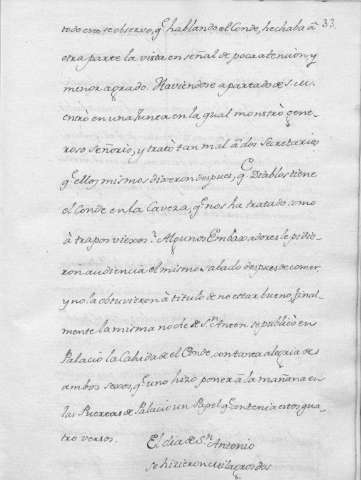 33
todo esto se observo, q.e hablando el Conde, hechaba â
otra parte la vista en señal de poca atencion, y
menor agrado. Haviendose apartado de S. M.
entrò en una Junta en la qual monstrò gene-
roso señorio, y tratò tan mal â dos Secretarios
q.e ellos mismos dixeron despues, q.e Diablos tiene
el Conde en la Caveza, q.e nos ha tratado como
à trapos viexos. Algunos Embaxadores le pidie-
ron audiencia el mismo sabado despues de comer,
y no la obtuvieron à titulo de no estar bueno, final-
mente la misma noche de S.n Anton se publicò en
Palacio la Cahida de el Conde, con tanta alegria de
ambos sexos, q.e uno hizo poner à la mañana en
las Puertas de Palacio un Papel q.e contenia estos qua-
tro versos.
El dia de S.n Antonio
se hizieron milagros dos